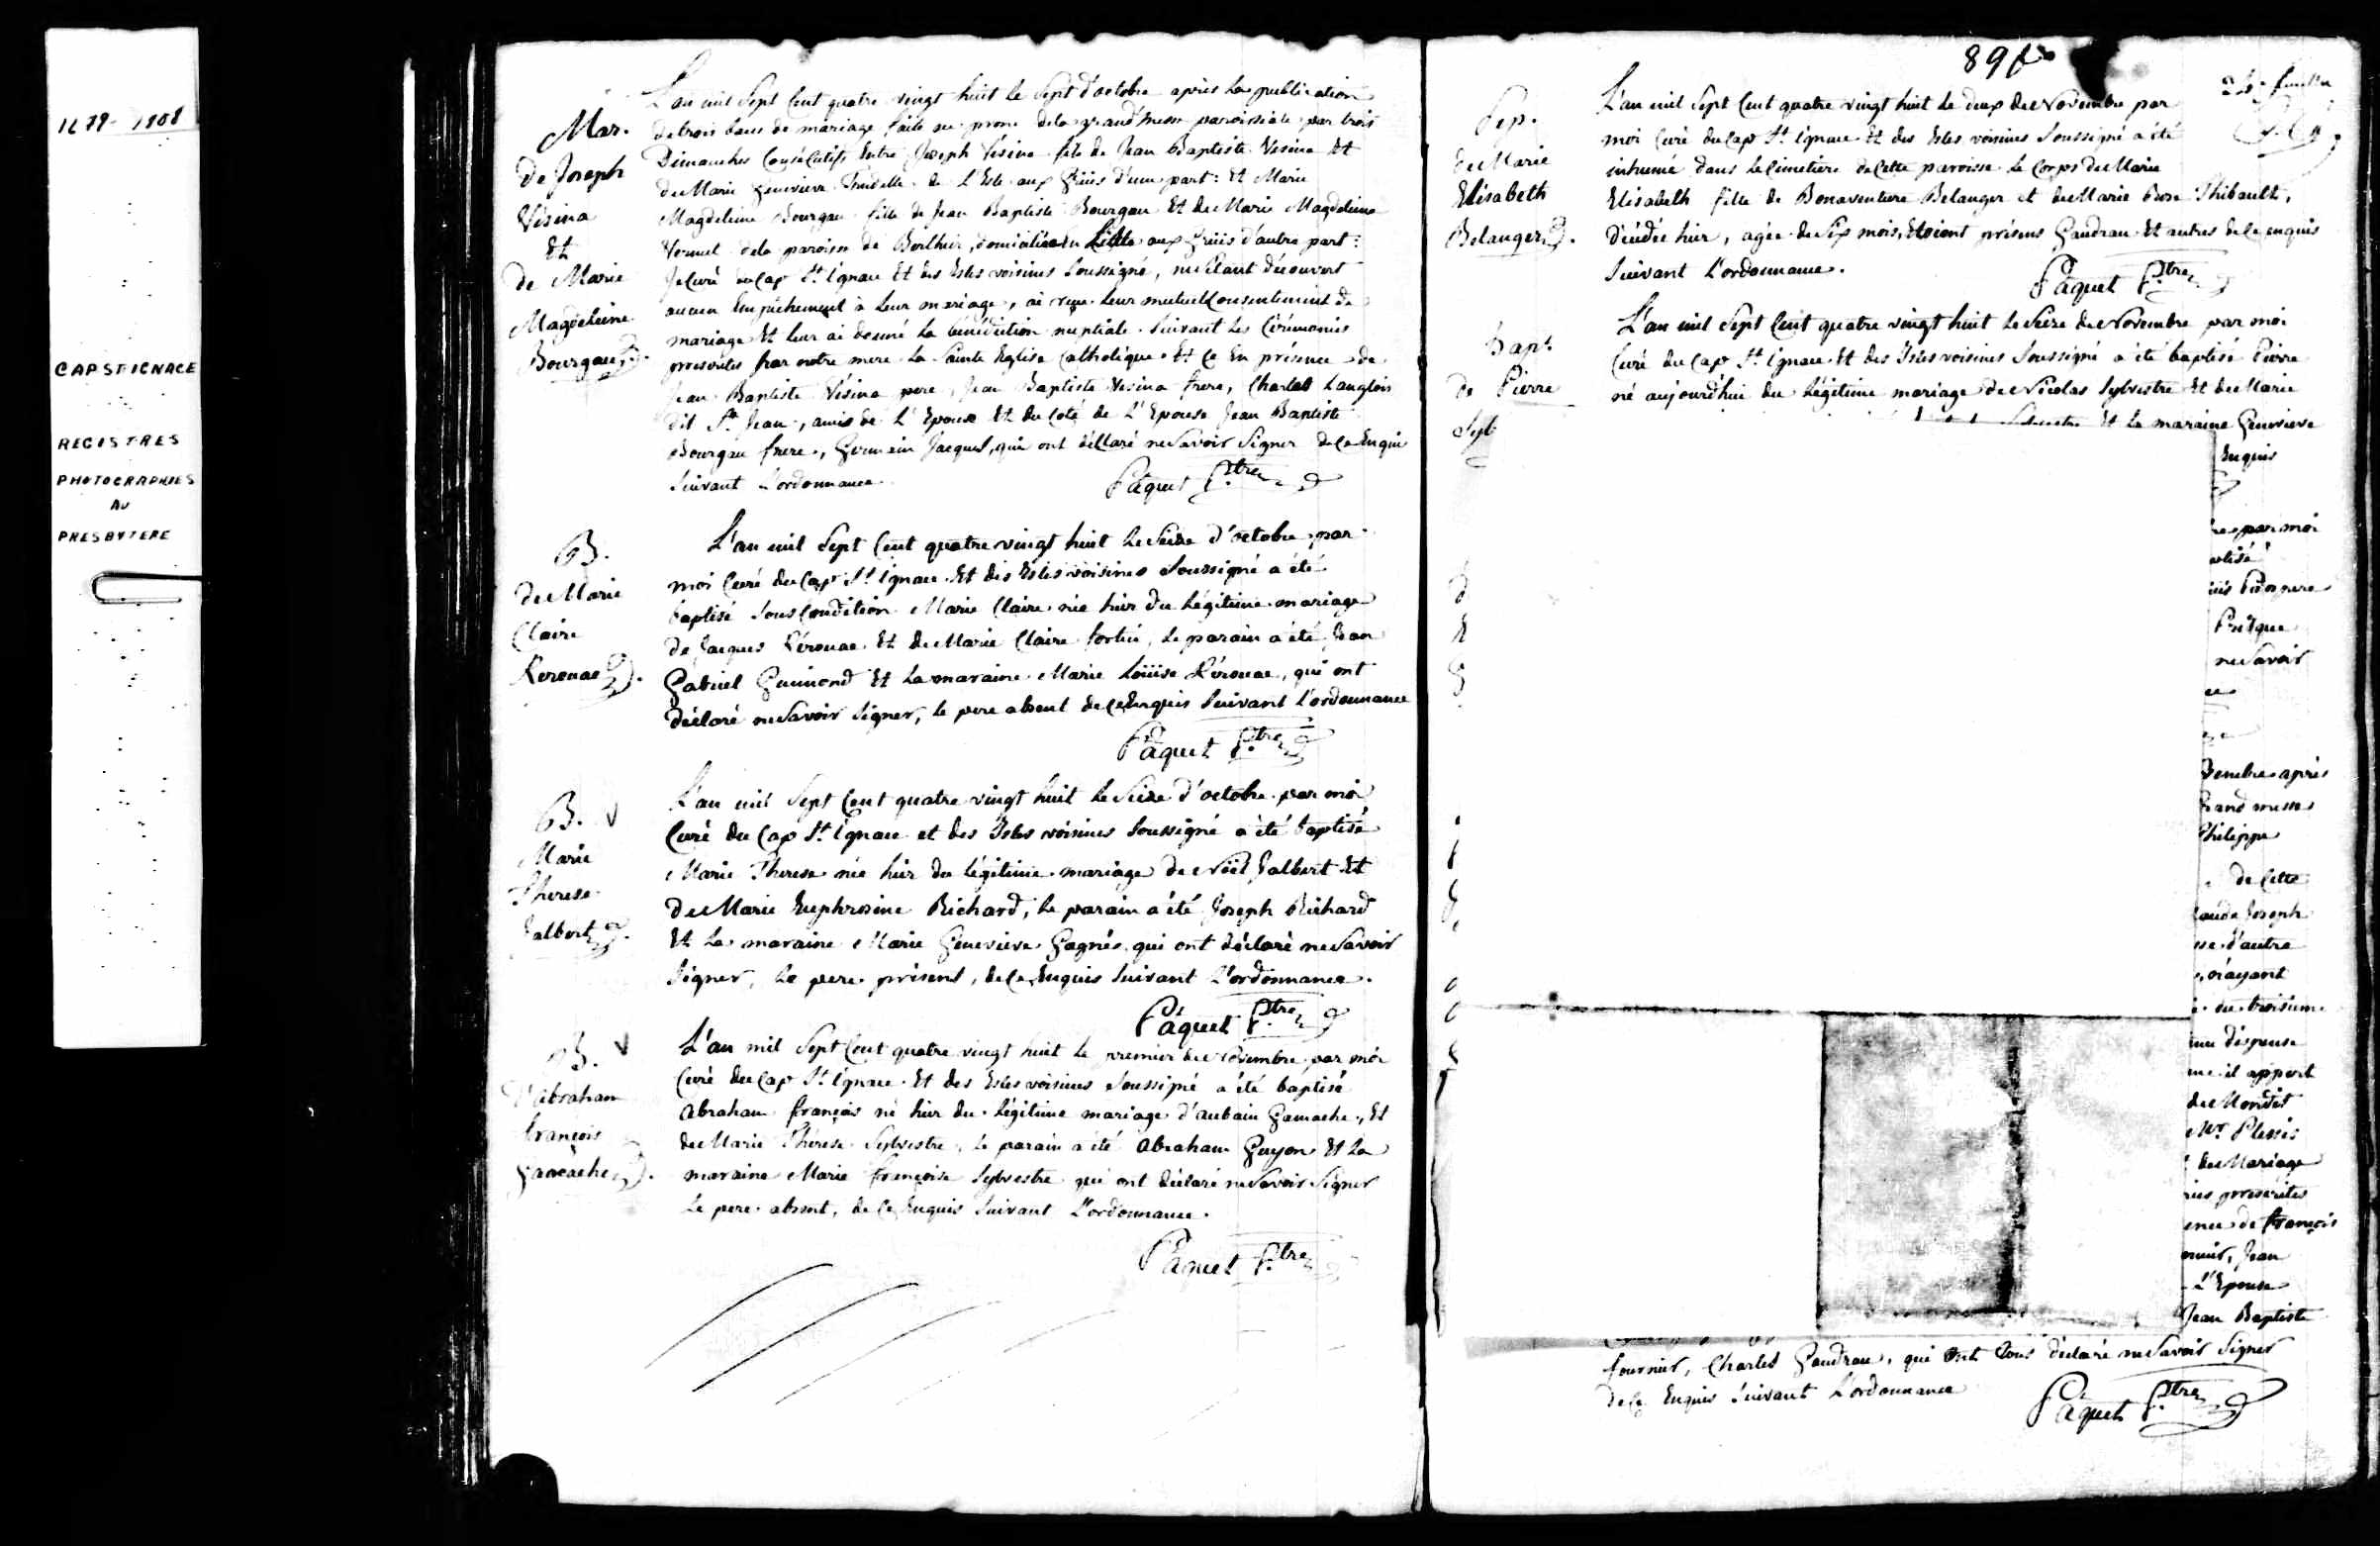 1679-1908
CAP ST-IGNACE
REGISTRES
PHOTOGRAPHIES
AU
PRESBYTERE
Mar.
de Joseph
Vésina
Et
de Marie
Magdeleine
Bourgau
L'an mil Sept Cent quatre vingt huit le Sept d'octobre après la publication
de trois bans de mariage faite au prone de la grand messe paroissiale par trois
Dimanches Consécutifs Entre Joseph Vésina fils de Jean Baptiste Vesina Et
de Marie Genevieve de L'Isle aux Grües d'une part: Et Marie
Magdeleine Bourgau fille de Jean Baptiste Bourgau Et de Marie Magdeleine
de la paroisse de Berthier, domiciliée en L'Isle aux Grües d'autre part:
Je Curé du Cap St. Ignace Et des Isles voisines Soussigné, ne S'étant découvert
aucun Empêchement à leur mariage, ai reçu leur mutuel Consentement de
mariage Et leur ai donné la bénédiction nuptiale Suivant les Cérémonies
prescrites par notre mere la Sainte Eglise Catholique. Et Ce En présence de
Jean Baptiste Vésina pere, Jean Baptiste Vesina frere, Charles Langlois
dit St. Jean, amis de L'Epoux Et du Coté de L'Epouse Jean Baptiste
Bourgau frere, Germain Jacques, qui ont déclaré ne Savoir Signer de Ce Enquis
Suivant L'ordonnance.
Pâquet Ptre
B.
de Marie
Claire
Kerouac
L'an mil Sept Cent quatre vingt huit le Seize d'octobre par
moi Curé du Cap St. Ignace Et des Isles voisines Soussigné a été
baptisé Sous Condition Marie Claire née hier du Légitime mariage
de Jacques Kérouac Et de Marie Claire fortin, le parain a été Jean
Gabriel Guimond Et la maraine Marie Loüise Kérouac, qui ont
déclaré ne Savoir Signer, le pere absent de Ce Enquis Suivant L'ordonnance
Pâquet Ptre
B.
Marie
Therese
Jalbert
L'an mil Sept Cent quatre vingt huit le Seize d'octobre par moi
Curé du Cap St. Ignace et des Isles voisines Soussigné a été baptisé
Marie Therese née hier du légitime mariage de Noël Jalbert Et
de Marie Euphrosine Richard, le parain a été Joseph Richard
Et la maraine Marie Genevieve Gagnés qui ont déclaré ne Savoir
Signer, Le pere présent, de Ce Enquis Suivant L'ordonnance.
Pâquet Ptre
B.
D'abraham
françois
Gamache
L'an mil Sept Cent quatre vingt huit le premier de Novembre par moi
Curé du Cap St. Ignace Et des Isles voisines Soussigné a été baptisé
Abraham françois né hier du Légitime mariage d'aubain Gamache, Et
de Marie Thérese Sylvestre, le parain a été Abraham Guyon Et la
maraine Marie françoise Sylvestre qui ont déclaré ne Savoir Signer
Le pere absent, de Ce Enquis Suivant L'ordonnance.
Pâquet Ptre
89
Sep.
de Marie
Elisabeth
Belanger
L'an mil Sept Cent quatre vingt huit le deux de Novembre par
moi Curé du Cap St. Ignace Et des Isles voisines Soussigné a été
inhumé dans le Cimetiere de Cette paroisse le Corps de Marie
Elisabeth fille de Bonaventure Belanger et de Marie Rose Thibault,
décédée hier, agée de Six mois, Etoient présens Gaudrau Et autres de Ce enquis
Suivant L'ordonnance.
Pâquet Ptre
Bapt.
de Pierre
L'an mil Sept Cent quatre vingt huit le Seize de Novembre par moi
Curé du Cap St. Ignace Et des Isles voisines Soussigné a été baptisé Pierre
né aujourd'hui du Légitime mariage de Nicolas Sylvestre Et de Marie
Et la maraine Genevieve
Enquis
par moi
ne Savoir
après
Grand messe
Philippe
de Cette
Joseph
d'autre
n'ayant
au troisieme
dispense
il appert
Mr. Plessis
de Mariage
prescrites
de françois
Jean
L'Epouse
Jean Baptiste
fournier, Charles Gaudrau, qui ont tous déclaré ne Savoir Signer
de Ce Enquis Suivant L'ordonnance
Pâquet Ptre